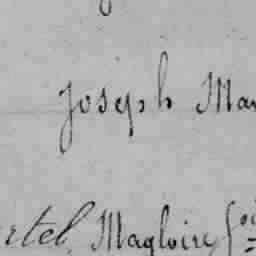 Joseph Ma
rtel, Magloire